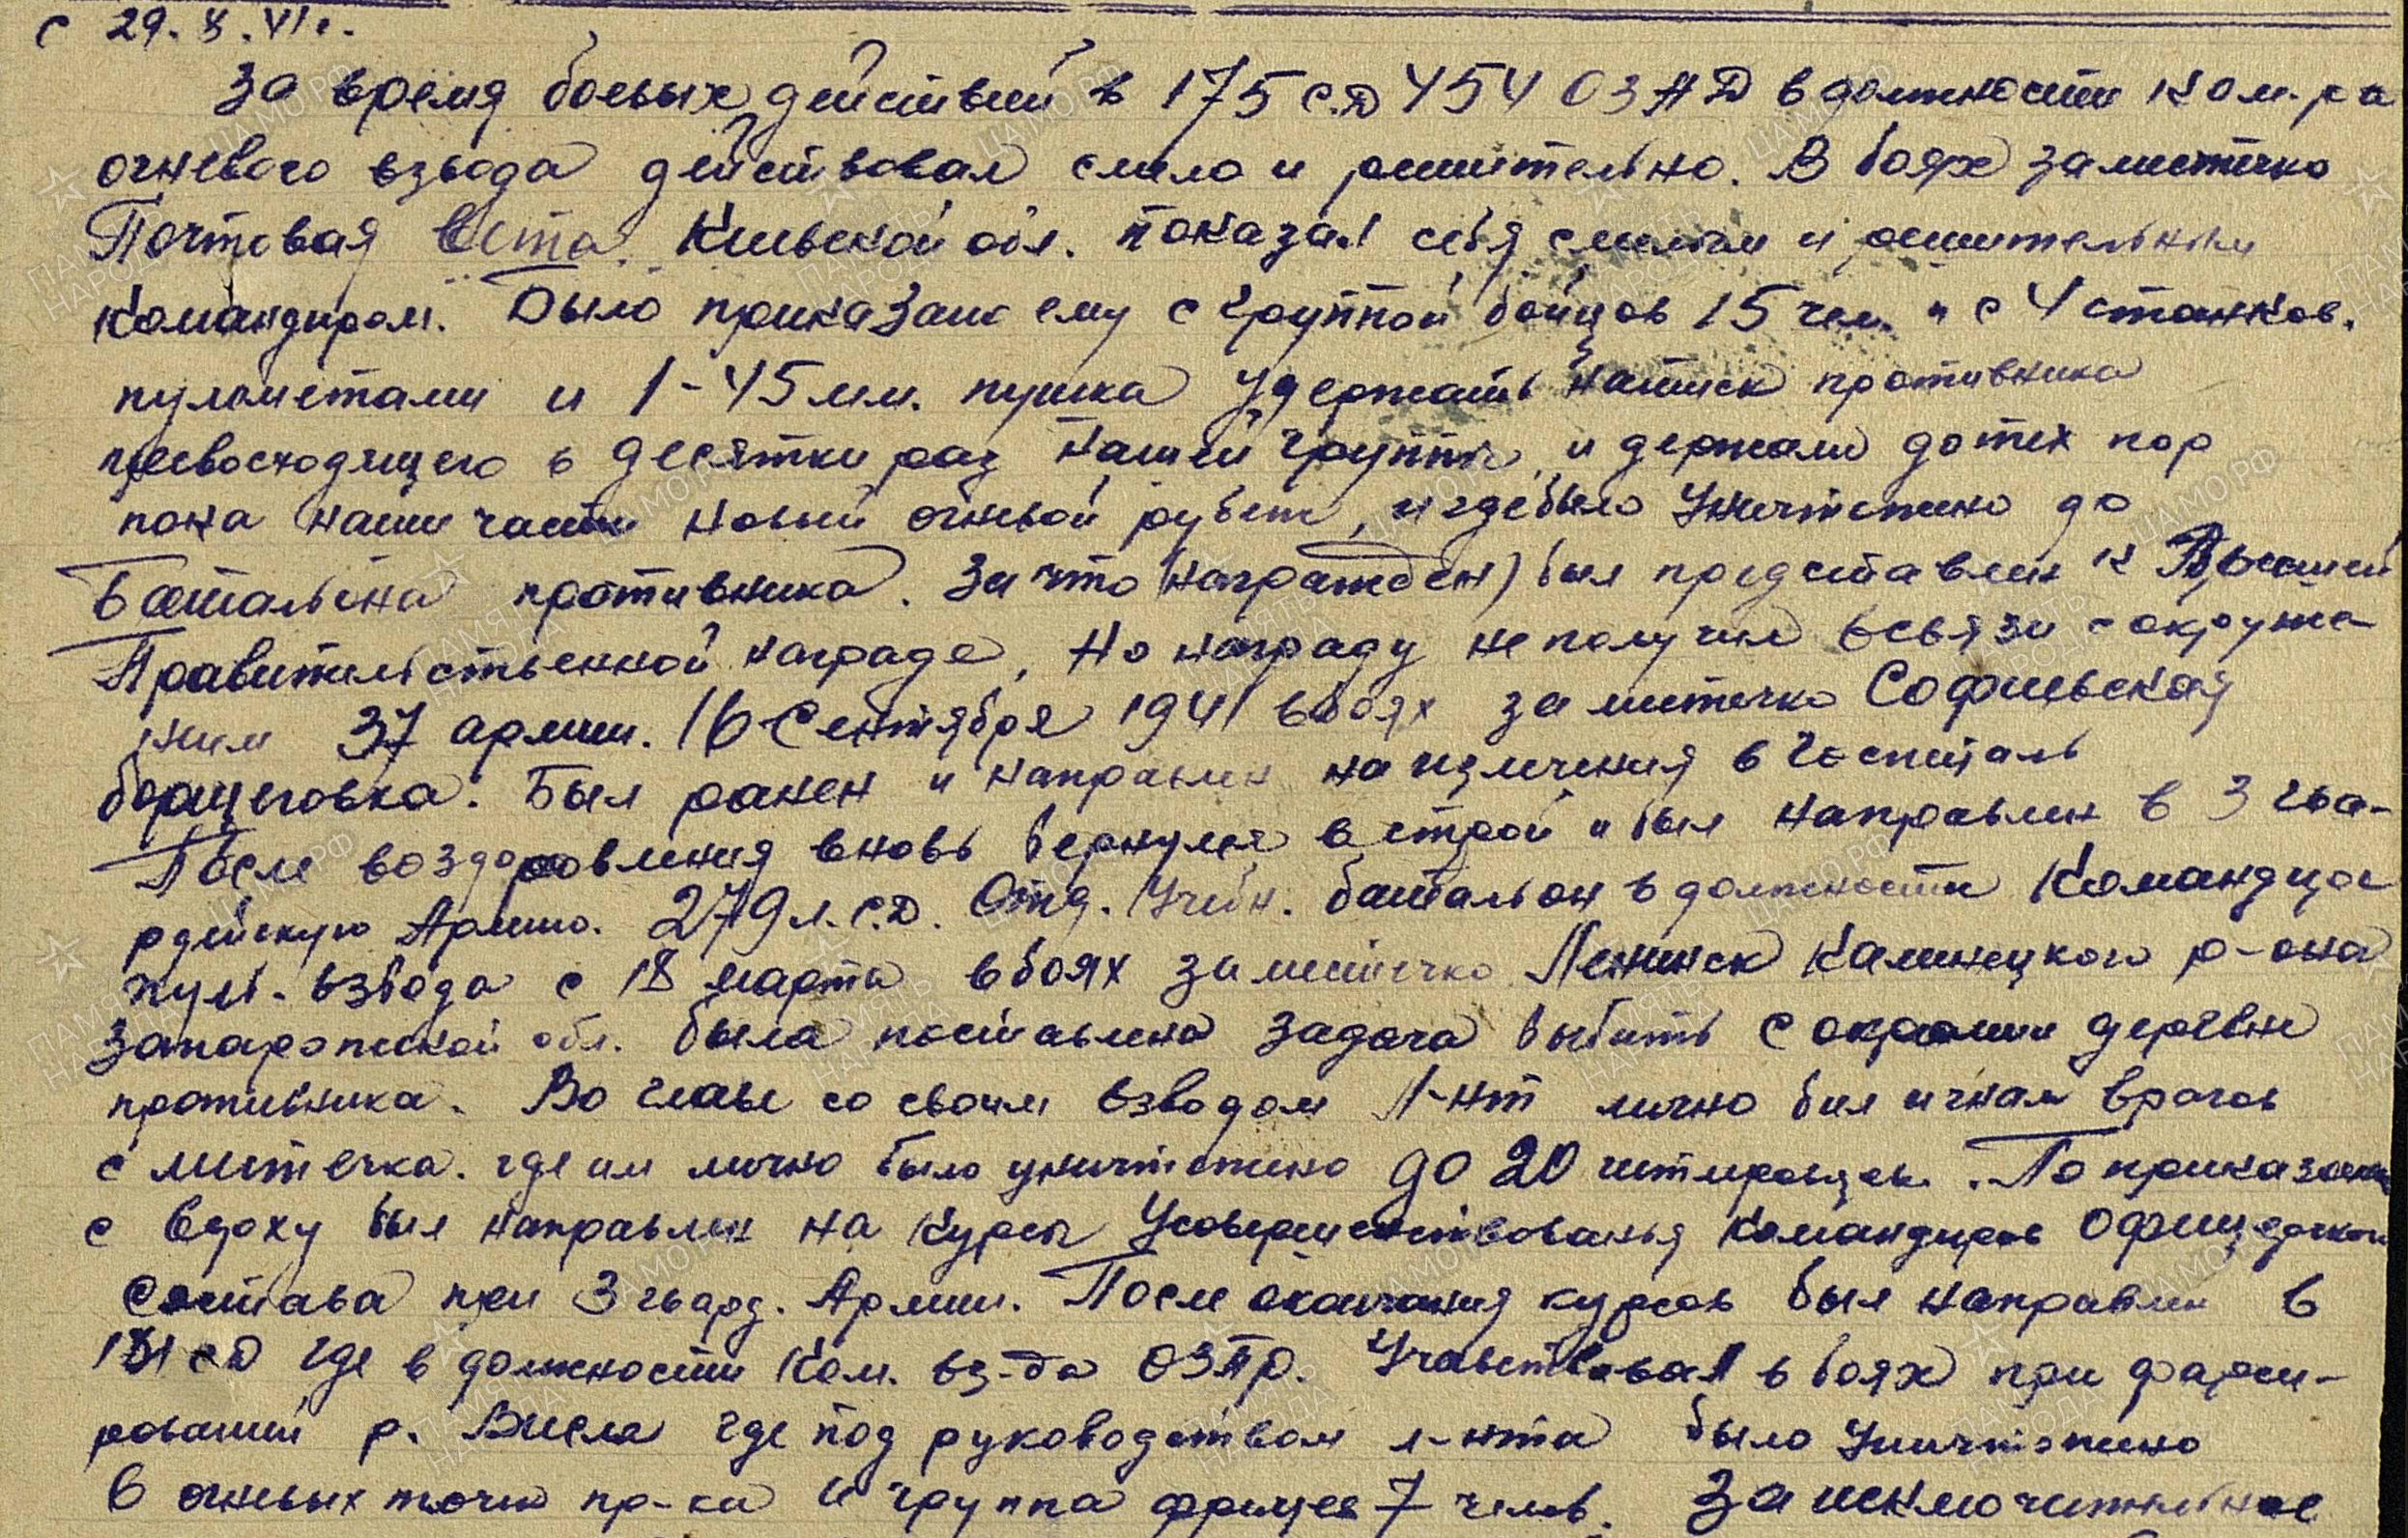 с 29. 8. VI г.
За время боевых действий в 175 с.д 454 ОЗАД в должности ком-ра
огневого взвода действовал смело и решительно. В боях за местечко
Почтовая Вета Киевской обл. показал себя смелым и решительным
командиром. Было приказано ему с группой бойцов 15 чел. и с 4 станков.
пулеметами и 1-45 мм. пушка удержать натиск противника
превосходящего в десятки раз нашей группы, и держали до тех пор
пока наши части новый огневой рубеж, и где было уничтожено до
Батальона противника. За что (награжден) был представлен к Высшей
Правительственной награде, Но награду не получил всвязи с окруже-
нием 37 армии. 16 Сентября 1941 в боях за местечко Софиевская
борщеговка. Был ранен и направлен на излечения в госпиталь
После воздоровления вновь вернулся в строй и был направлен в 3 гва-
рдейскую Армию. 279 л.с.д. Отд. Учебн. батальон в должности Командира
пул. взвода с 18 марта в боях за местечко Ленинск Каменецкого р-она
Запарожской обл. была поставлена задача выбить с окраины деревни
противника. Во главе со своим взводом л-нт лично бил и гнал врагов
с местечка. где им лично было уничтожено до 20 гитлеровцев. По приказанию
с вдоху был направлен на курсы Усовершенствованья командиров офицерского
состава при 3 гвард. Армии. После окончания курсов был направлен в
сд где в должности ком. вз-да ОЗПР. Участвовал в боях при форси-
ровании р. Висла где под руководством л-нта было уничтожено
6 огневых точек пр-ка и группа фрицев 7 челов. За исключительное